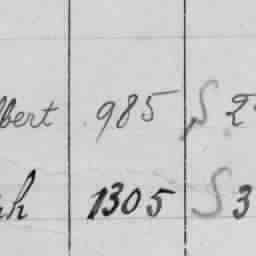 lbert 985 S 2
h 1305 S 3